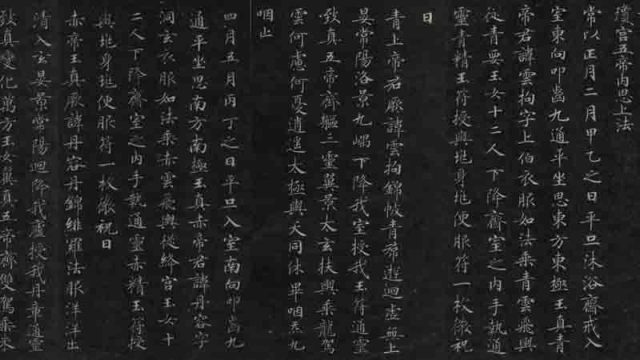 瓊宮五帝內思上法
常以正月二月甲乙之日平旦沐浴齋戒入
室東向叩齒九通平坐思東方東極玉真青
帝君諱雲拘字上伯衣服如法乘青雲飛輿
從青要玉女十二人下降齋室之內手執通
靈青精玉符授與兆身兆便服符一枚微祝
曰
青上帝君厥諱雲拘錦帔青帬遊迴虛無上
晏常陽洛景九嵎下降我室授我玉符通靈
致真五帝齊軀三靈翼景太玄扶輿乘龍駕
雲何慮何憂逍遙太極與天同休畢咽炁九
咽止
四月五月丙丁之日平旦入室南向叩齒九
通平坐思南方南極玉真赤帝君諱丹容字
洞玄衣服如法乘赤雲飛輿從絳宮玉女十
二人下降齋室之內手執通靈赤精玉符授
與兆身兆便服符一枚微祝曰
赤帝玉真厥諱丹容丹錦緋羅法服洋洋出
清入玄晏景常陽迴降我廬授我丹章通靈
致真變化萬方玉女翼真五帝齊雙駕乘朱